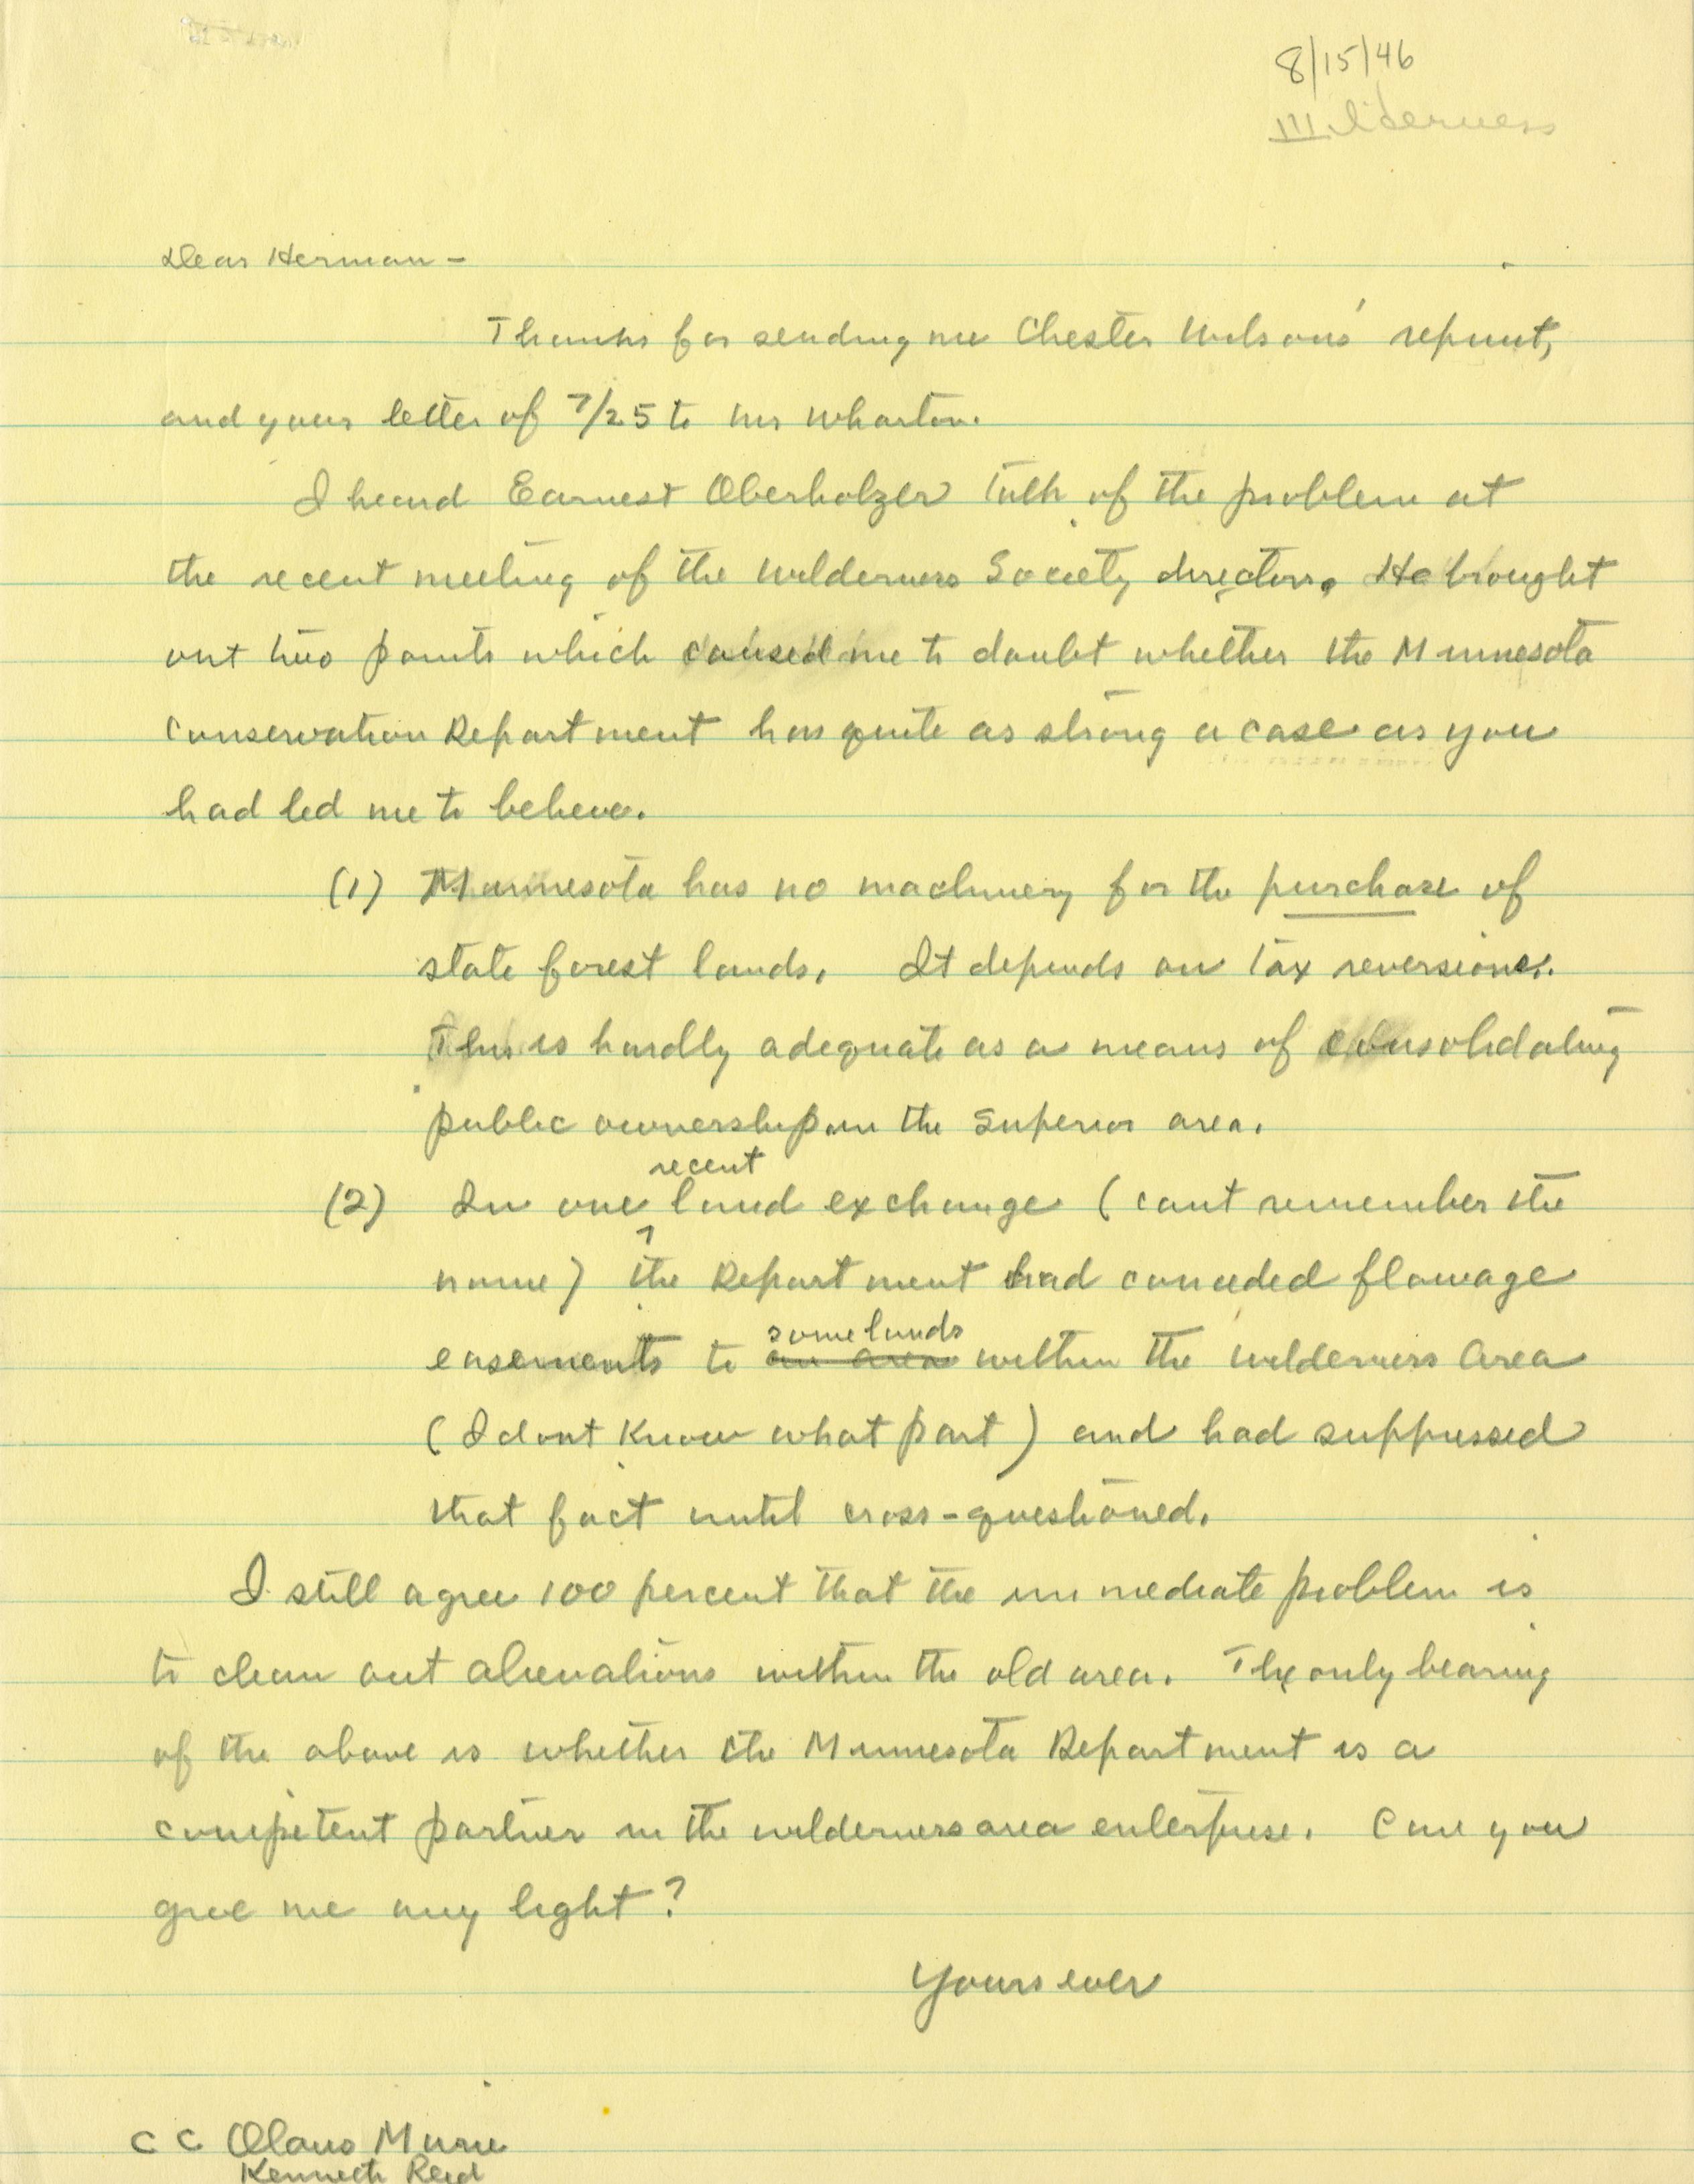 8/15/46
Wilderness
Dear Herman -
Thanks for sending me Chester Wilsons' reprint,
and your letter of 7/25 to Mr Wharton.
I heard Earnest Oberholzer talk of the problem at
the recent meeting of the Wilderness Society directors. He brought
out two points which caused me to doubt whether the Minnesota
Conservation Department has quite as strong a case as you
had led me to believe.
(1) Minnesota has no machinery for the purchase of
state forest lands. It depends on tax reversions.
This is hardly adequate as a means of consolidating
public ownership in the Superior area.
recent
(2) In one land exchange (cant remember the
name) the Department had conceded flowage
some lands
easements to an area within the wilderness area
(I dont know what part) and had suppressed
that fact until cross-questioned.
I still agree 100 percent that the immediate problem is
to clean out alienations within the old area. The only bearing
of the above is whether the Minnesota Department is a
competent partner in the wilderness area enterprise. Can you
give me any light?
Yours ever
cc Olaus Murie
Kenneth Reid